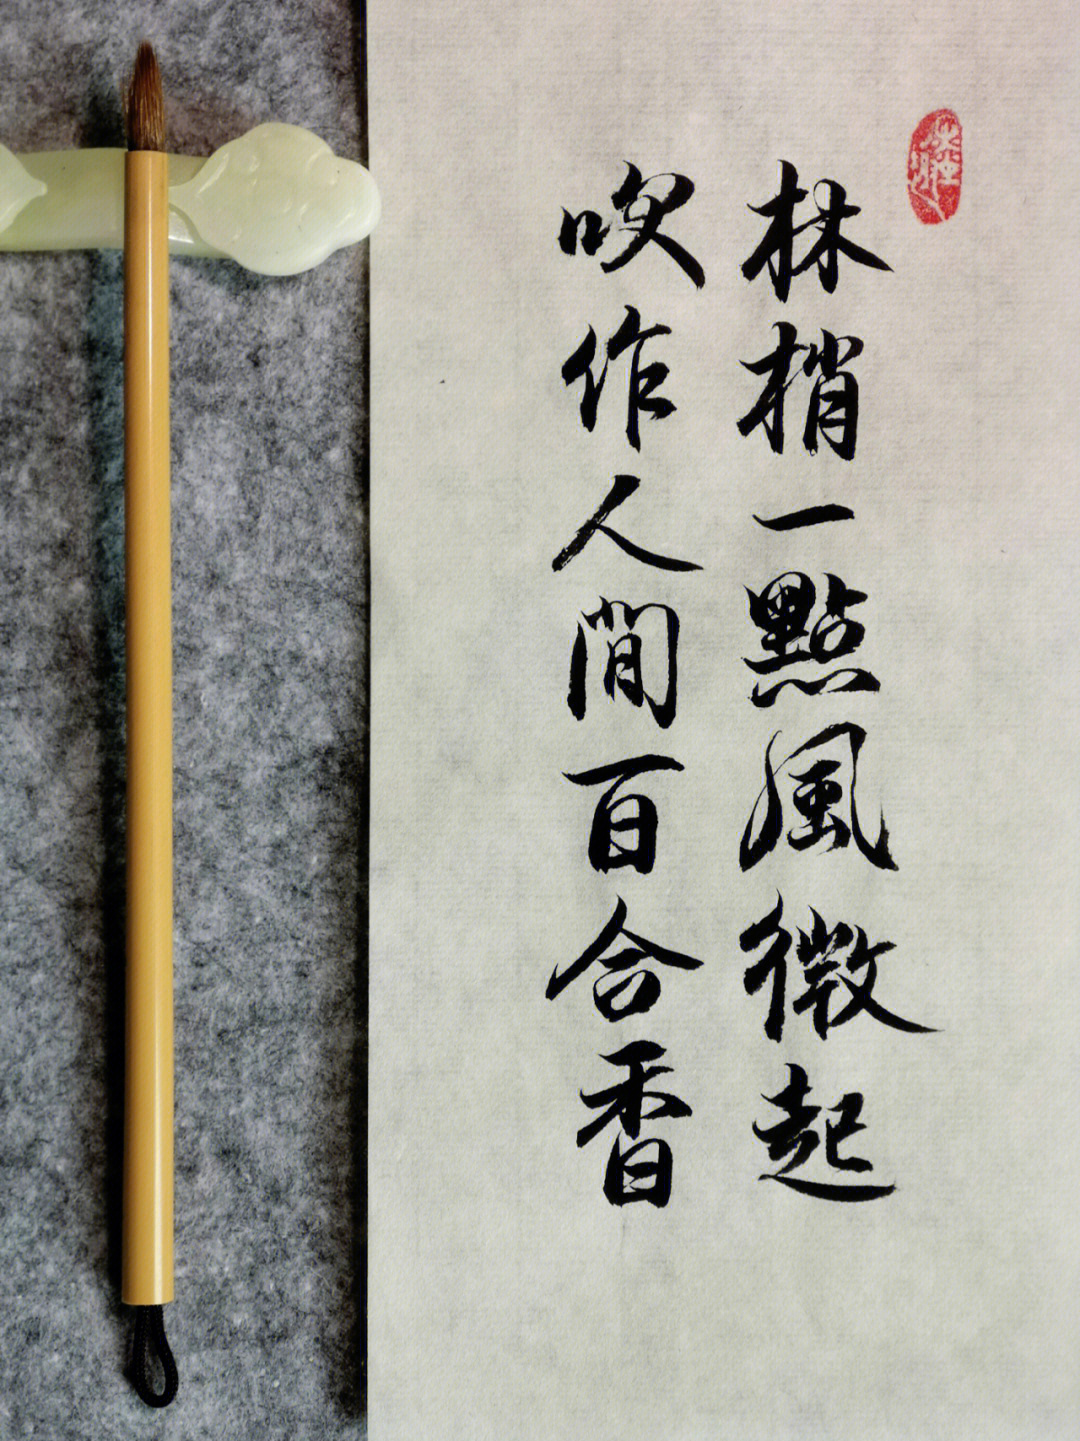 林梢一點風微起
吹作人間百合香